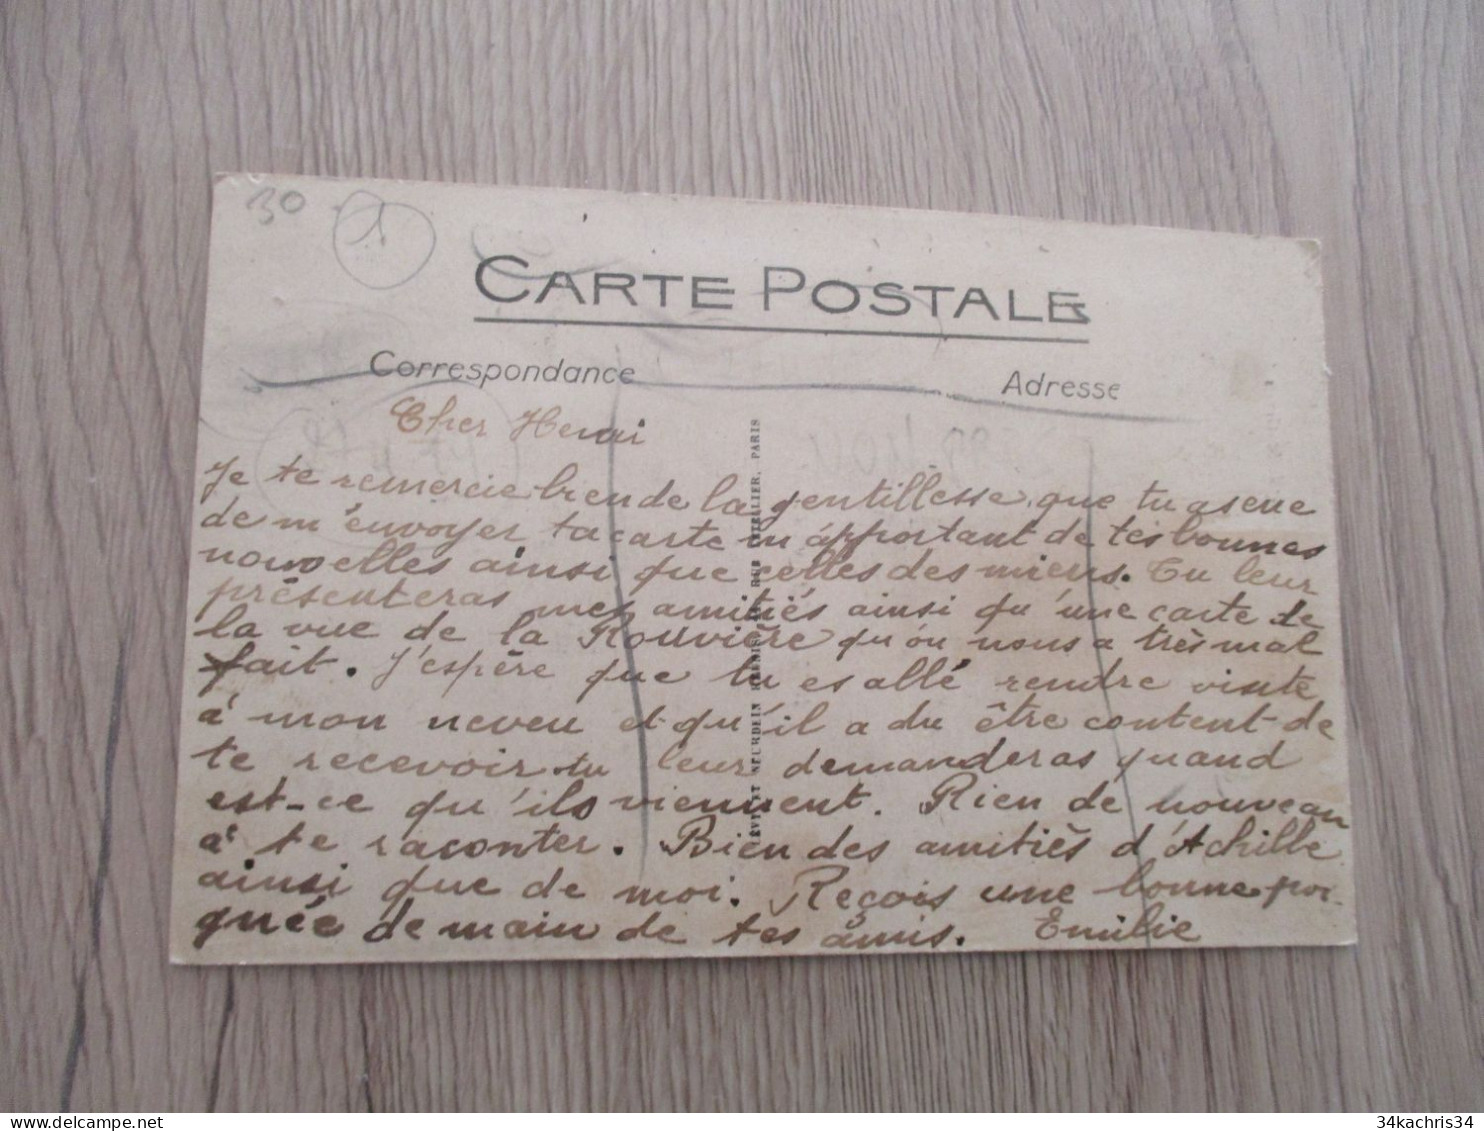 30
1
CARTE POSTALE
Correspondance
Adresse
Cher Henri
Je te remercie bien de la gentillesse que tu as eue
de m'envoyer ta carte m'apportant de tes bonnes
nouvelles ainsi que celles des miens. Tu leur
présenteras mes amitiés ainsi qu'une carte de
la vue de la Rouvière qu'on nous a très mal
fait. J'espère que tu es allé rendre visite
à mon neveu et qu'il a du être content de
te recevoir tu leur demanderas quand
est-ce qu'ils viennent. Rien de nouveau
à te raconter. Bien des amitiés d'Achille
ainsi que de moi. Reçois une bonne poi-
gnée de main de tes amis. Emilie
LÉVY ET NEURDEIN RÉUNIS, RUE LETELLIER, PARIS
34kachris34